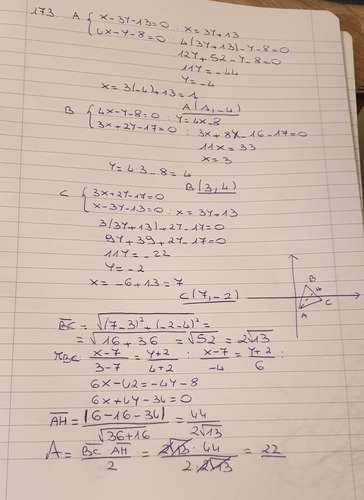 173 A { x-3y-13=0 : x=3y+13
4x-y-8=0 : 4(3y+13)-y-8=0
12y+52-y-8=0
11y=-44
y=-4
x=3(-4)+13=1
A(1,-4)
B { 4x-y-8=0 : y=4x-8
3x+2y-17=0 : 3x+8x-16-17=0
11x=33
x=3
y=4·3-8=4
B(3,4)
C { 3x+2y-17=0
x-3y-13=0 : x=3y+13
3(3y+13)+2y-17=0
9y+39+2y-17=0
11y=-22
y=-2
x=-6+13=7
C(7,-2)
B
H
A
C
BC=√(7-3)²+(-2-4)²=
=√16+36=√52=2√13
rBC x-7/3-7=y+2/4+2 : x-7/-4=y+2/6 :
6x-42=-4y-8
6x+4y-34=0
AH=|6-16-34|/√36+16=44/2√13
A=BC·AH/2=2√13·44/2·2√13=22